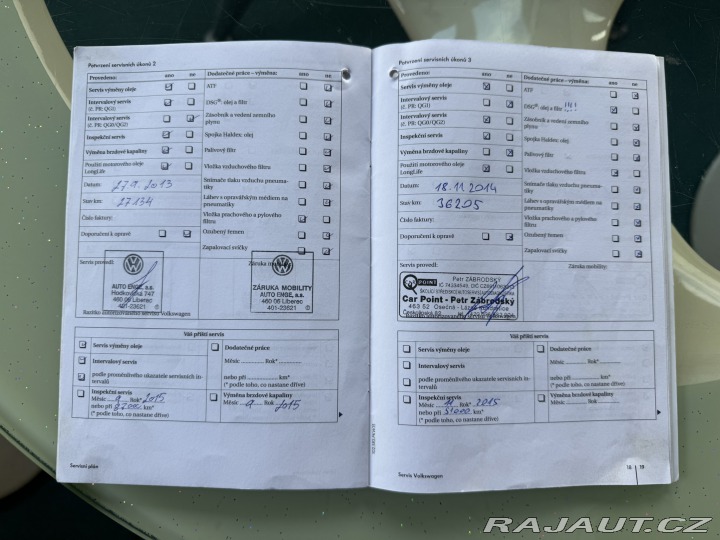 Potvrzení servisních úkonů 2
Provedeno: ano ne
Dodatečné práce – výměna: ano ne
Servis výměny oleje
ATF
Intervalový servis
(č. PR: QG1)
DSG®: olej a filtr
Intervalový servis
(č. PR: QG0/QG2)
Zásobník a vedení zemního
plynu
Inspekční servis
Spojka Haldex: olej
Výměna brzdové kapaliny
Palivový filtr
Použití motorového oleje
LongLife
Vložka vzduchového filtru
Datum: 27.9.2013
Snímače tlaku vzduchu pneuma-
tiky
Stav km: 27134
Láhev s opravárským médiem na
pneumatiky
Číslo faktury:
Vložka prachového a pylového
filtru
Doporučení k opravě
Ozubený řemen
Zapalovací svíčky
Servis provedl:
Záruka mobility:
AUTO ENGE, a.s.
Hodkovická 747
460 06 Liberec
401-23621
ZÁRUKA MOBILITY
AUTO ENGE, a.s.
460 06 Liberec
401-23621
Razítko autorizovaného servisu Volkswagen
Váš příští servis
Servis výměny oleje
Dodatečné práce
Intervalový servis
Měsíc Rok*
nebo při km*
podle proměnlivého ukazatele servisních in-
tervalů
(* podle toho, co nastane dříve)
Inspekční servis
Měsíc 9 Rok* 2015
nebo při km*
(* podle toho, co nastane dříve)
Výměna brzdové kapaliny
Měsíc 9 Rok 2015
Servisní plán
Potvrzení servisních úkonů 3
Provedeno: ano ne
Dodatečné práce – výměna: ano ne
Servis výměny oleje
ATF
Intervalový servis
(č. PR: QG1)
DSG®: olej a filtr !!!!
Intervalový servis
(č. PR: QG0/QG2)
Zásobník a vedení zemního
plynu
Inspekční servis
Spojka Haldex: olej
Výměna brzdové kapaliny
Palivový filtr
Použití motorového oleje
LongLife
Vložka vzduchového filtru
Datum: 18.11.2014
Snímače tlaku vzduchu pneuma-
tiky
Stav km: 36205
Láhev s opravárským médiem na
pneumatiky
Číslo faktury:
Vložka prachového a pylového
filtru
Doporučení k opravě
Ozubený řemen
Zapalovací svíčky
Servis provedl:
Záruka mobility:
POINT
Petr ZÁBRODSKÝ
Car Point - Petr Zábrodský
463 52 Osečná
Razítko autorizovaného servisu Volkswagen
Váš příští servis
Servis výměny oleje
Dodatečné práce
Intervalový servis
Měsíc Rok*
nebo při km*
podle proměnlivého ukazatele servisních in-
tervalů
(* podle toho, co nastane dříve)
Inspekční servis
Měsíc 11 Rok* 2015
nebo při 51000 km*
(* podle toho, co nastane dříve)
Výměna brzdové kapaliny
Měsíc Rok
Servis Volkswagen
18 | 19
RAJAUT.CZ